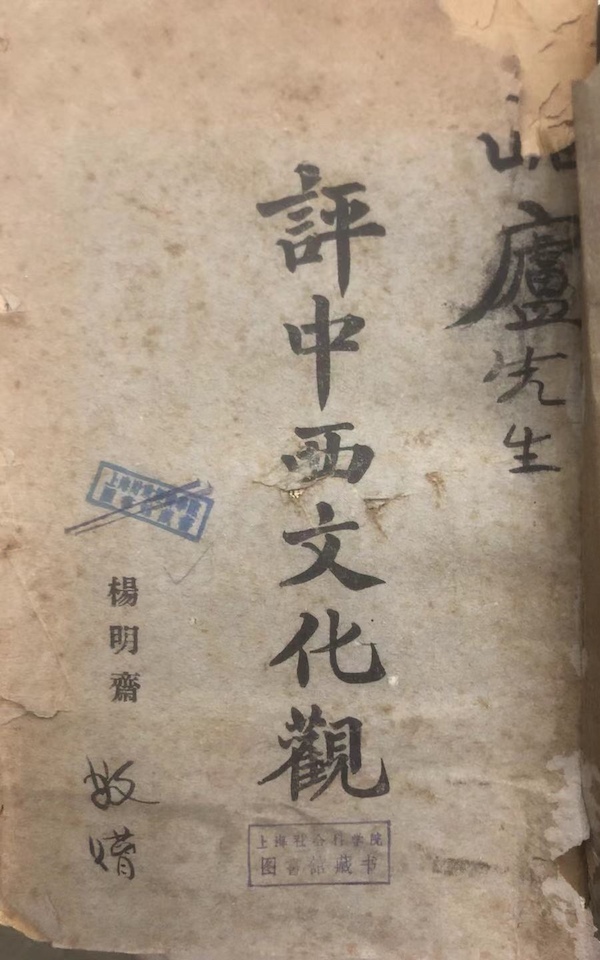 廬先生
評中西文化觀
楊明齋
敬贈
上海社会科学院
图書館藏书